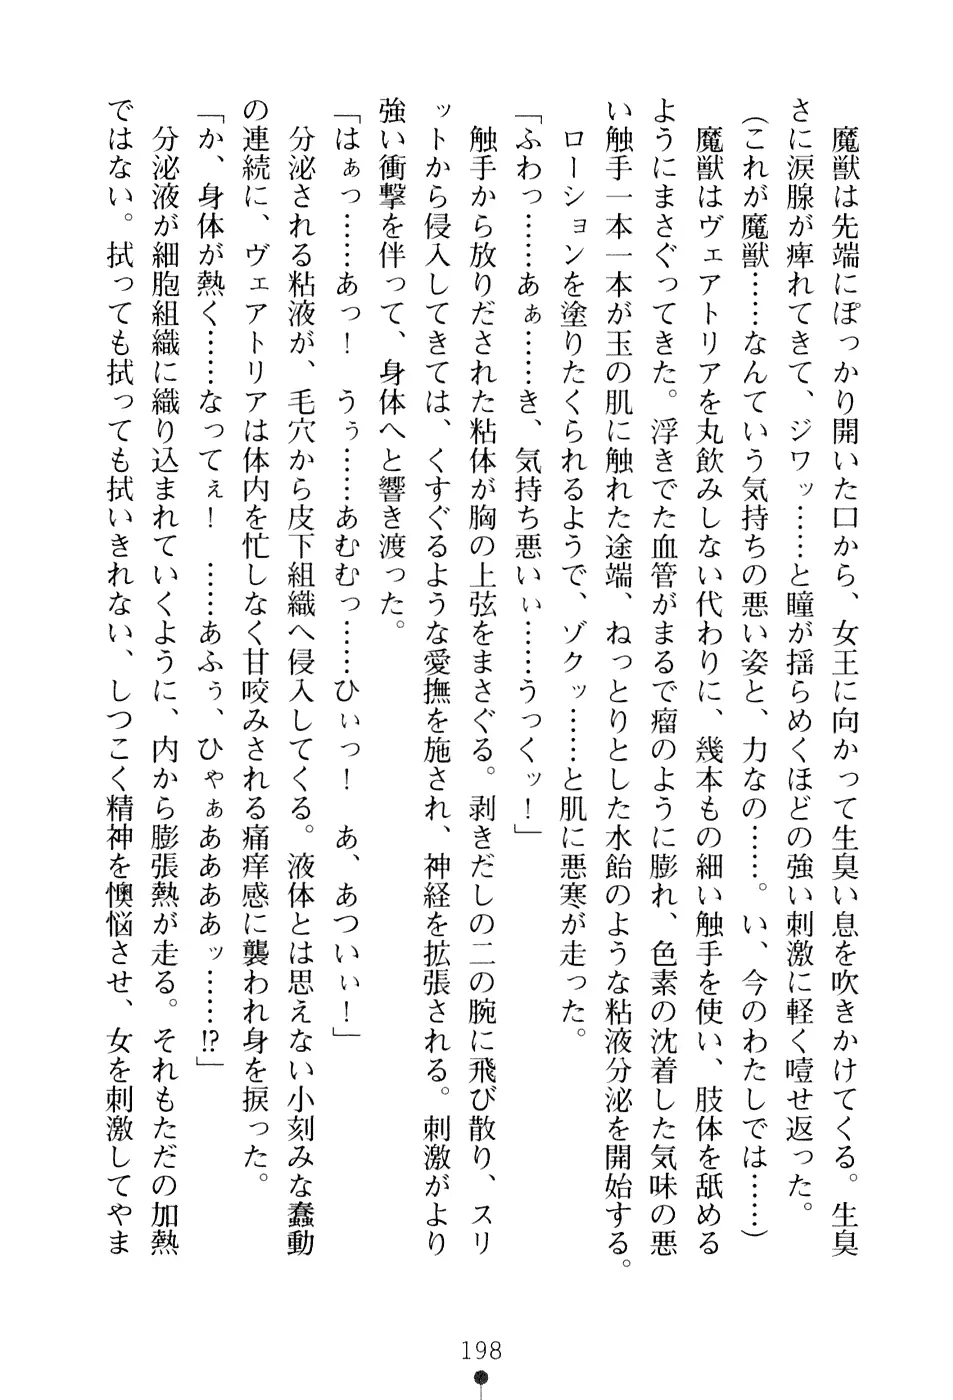 魔獣は先端にぽっかり開いた口から、女王に向かって生臭い息を吹きかけてくる。生臭
さに涙腺が痺れてきて、ジワッ……と瞳が揺らめくほどの強い刺激に軽く噎せ返った。
(これが魔獣……なんていう気持ちの悪い姿と、力なの……。い、今のわたしでは……)
魔獣はヴェアトリアを丸飲みしない代わりに、幾本もの細い触手を使い、肢体を舐める
ようにまさぐってきた。浮きでた血管がまるで瘤のように膨れ、色素の沈着した気味の悪
い触手一本一本が玉の肌に触れた途端、ねっとりとした水飴のような粘液分泌を開始する。
ローションを塗りたくられるようで、ゾクッ……と肌に悪寒が走った。
「ふわっ……あぁ……き、気持ち悪いぃ……うっくッ！」
触手から放りだされた粘体が胸の上弦をまさぐる。剥きだしの二の腕に飛び散り、スリ
ットから侵入してきては、くすぐるような愛撫を施され、神経を拡張される。刺激がより
強い衝撃を伴って、身体へと響き渡った。
「はぁっ……あっ！　うぅ……あむむっ……ひぃっ！　あ、あついぃ！」
分泌される粘液が、毛穴から皮下組織へ侵入してくる。液体とは思えない小刻みな蠢動
の連続に、ヴェアトリアは体内を忙しなく甘咬みされる痛痒感に襲われ身を捩った。
「か、身体が熱く……なってぇ！　……あふぅ、ひゃぁあああッ……!?」
分泌液が細胞組織に織り込まれていくように、内から膨張熱が走る。それもただの加熱
ではない。拭っても拭っても拭いきれない、しつこく精神を懊悩させ、女を刺激してやま
198